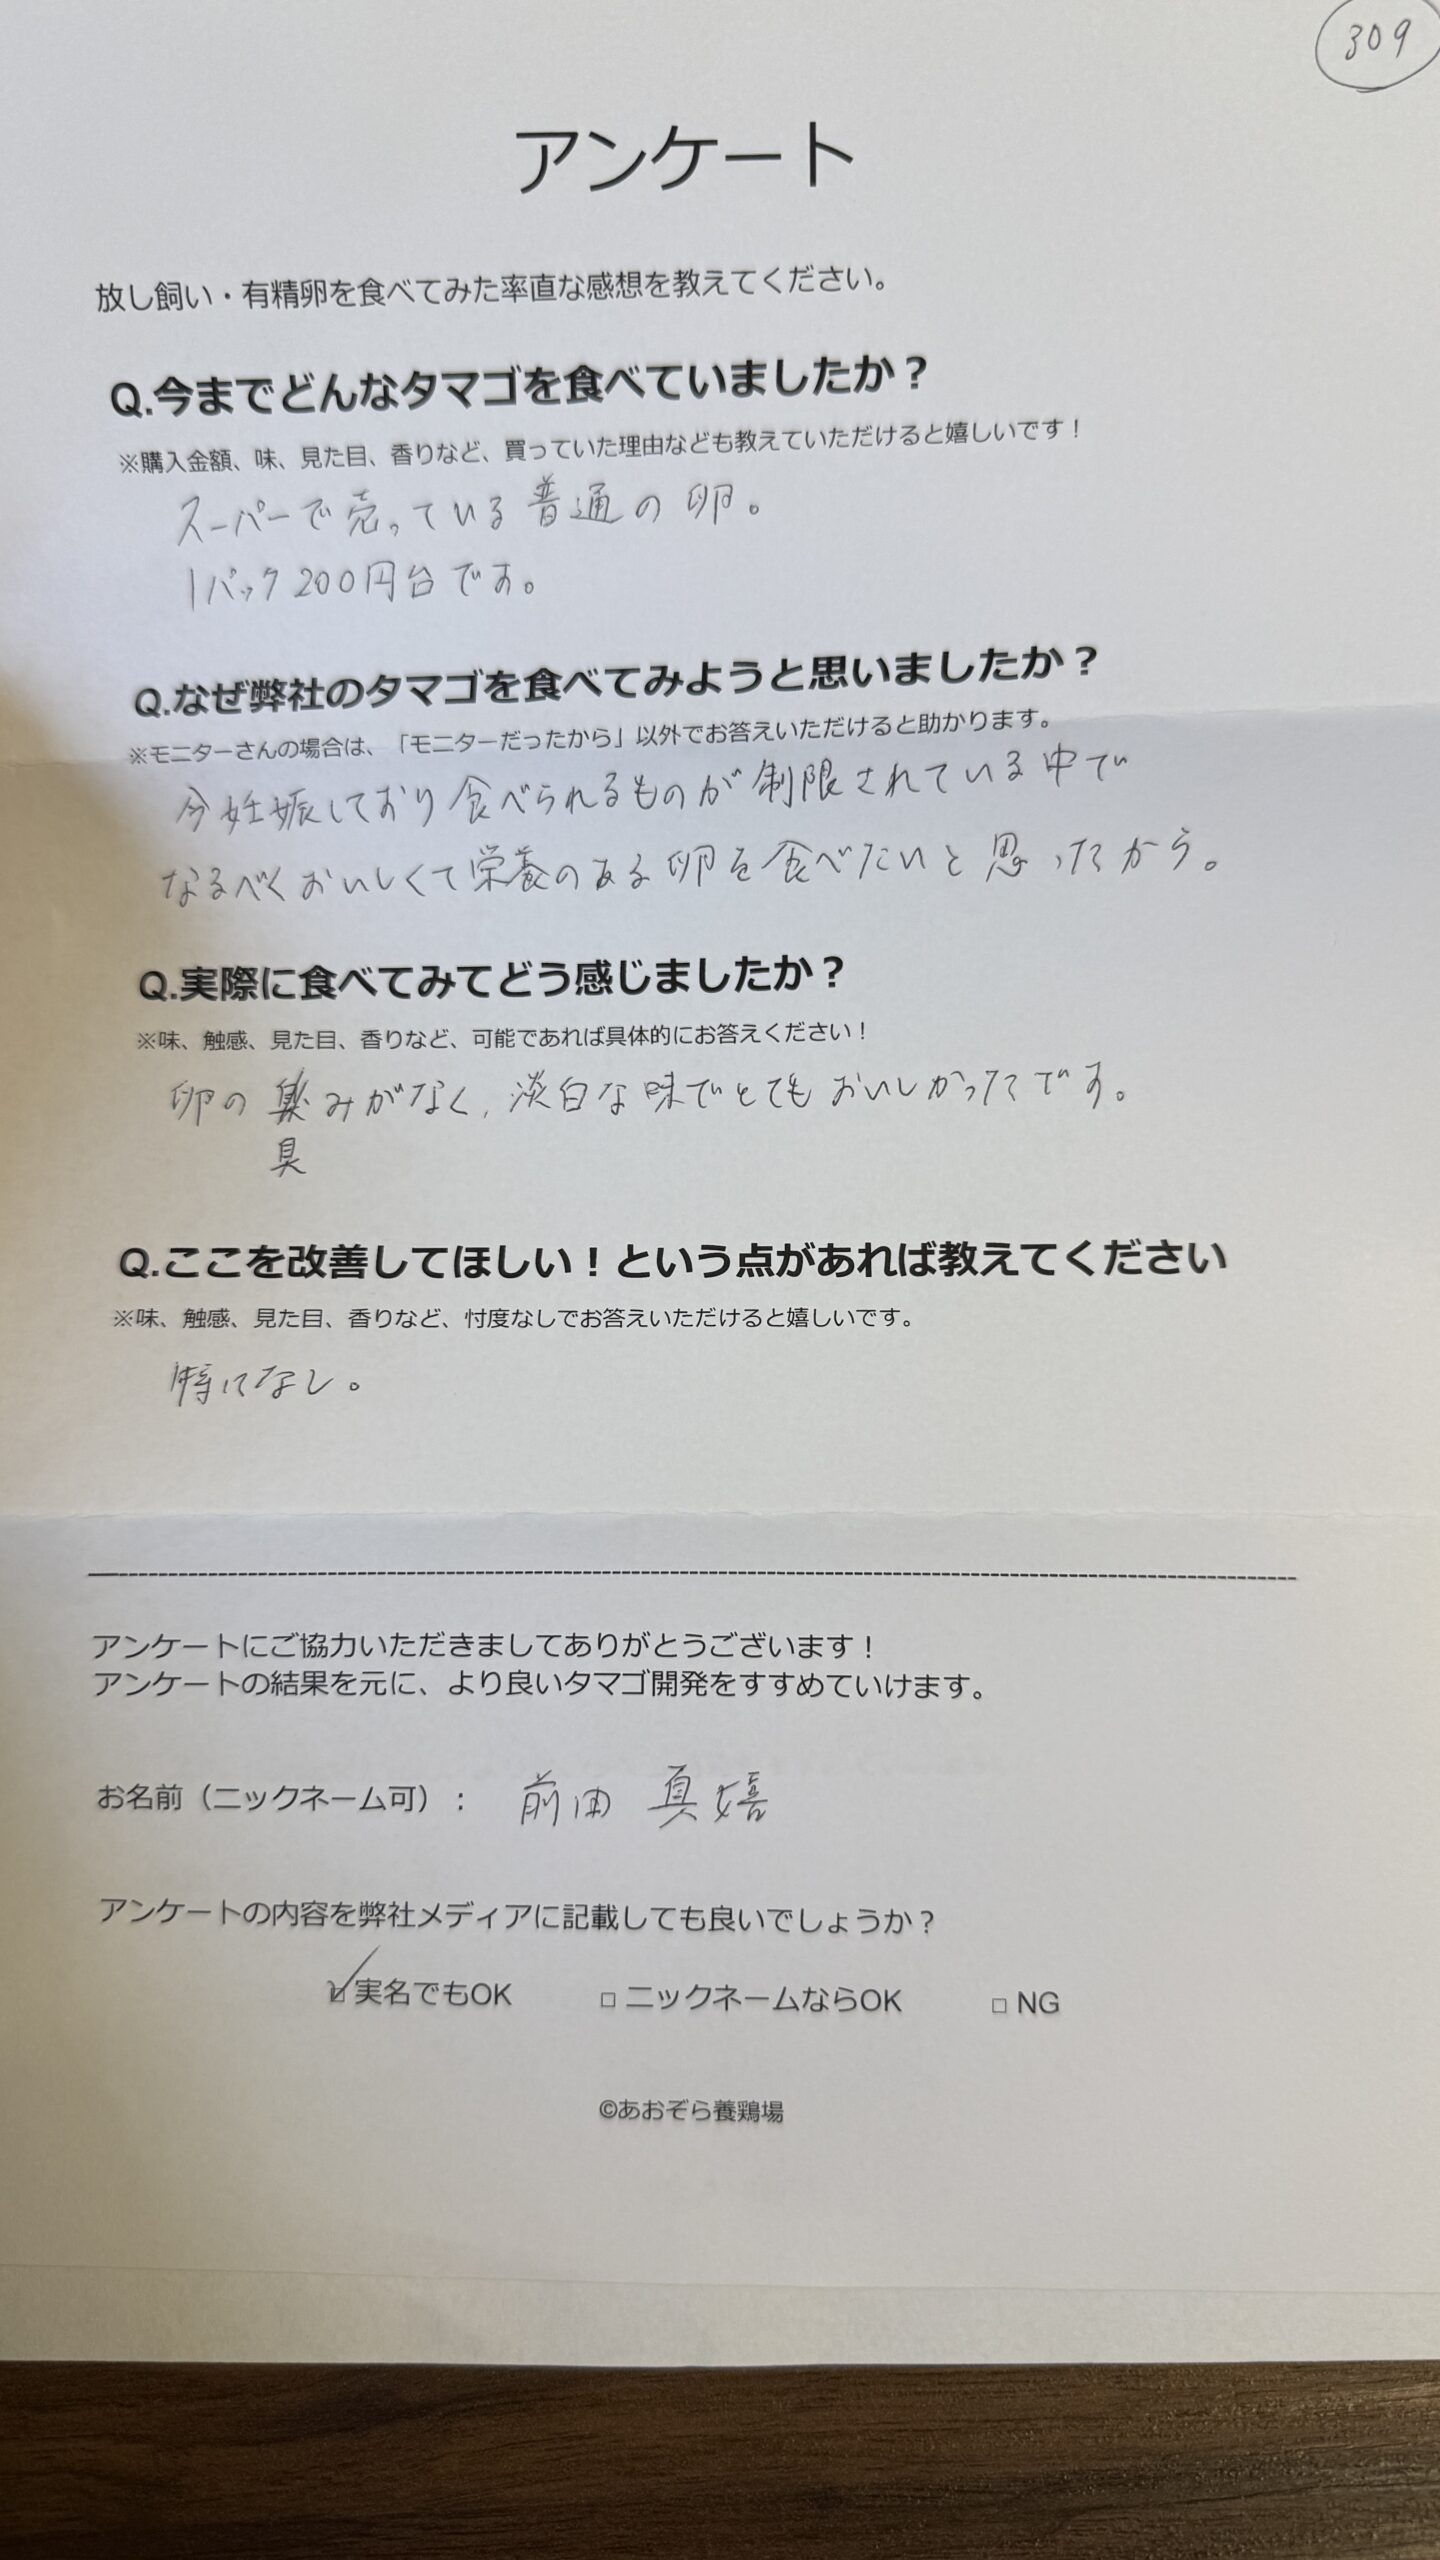 309
アンケート
放し飼い・有精卵を食べてみた率直な感想を教えてください。
Q.今までどんなタマゴを食べていましたか？
※購入金額、味、見た目、香りなど、買っていた理由なども教えていただけると嬉しいです！
スーパーで売っている普通の卵。
1パック200円台です。
Q.なぜ弊社のタマゴを食べてみようと思いましたか？
※モニターさんの場合は、「モニターだったから」以外でお答えいただけると助かります。
今妊娠しており食べられるものが制限されている中で
なるべくおいしくて栄養のある卵を食べたいと思ったから。
Q.実際に食べてみてどう感じましたか？
※味、触感、見た目、香りなど、可能であれば具体的にお答えください！
卵の みがなく、淡白な味でとてもおいしかったです。
臭
Q.ここを改善してほしい！という点があれば教えてください
※味、触感、見た目、香りなど、忖度なしでお答えいただけると嬉しいです。
特になし。
アンケートにご協力いただきましてありがとうございます！
アンケートの結果を元に、より良いタマゴ開発をすすめていけます。
お名前（ニックネーム可）： 前田 真嬉
アンケートの内容を弊社メディアに記載しても良いでしょうか？
☑ 実名でもOK □ ニックネームならOK □ NG
©あおぞら養鶏場